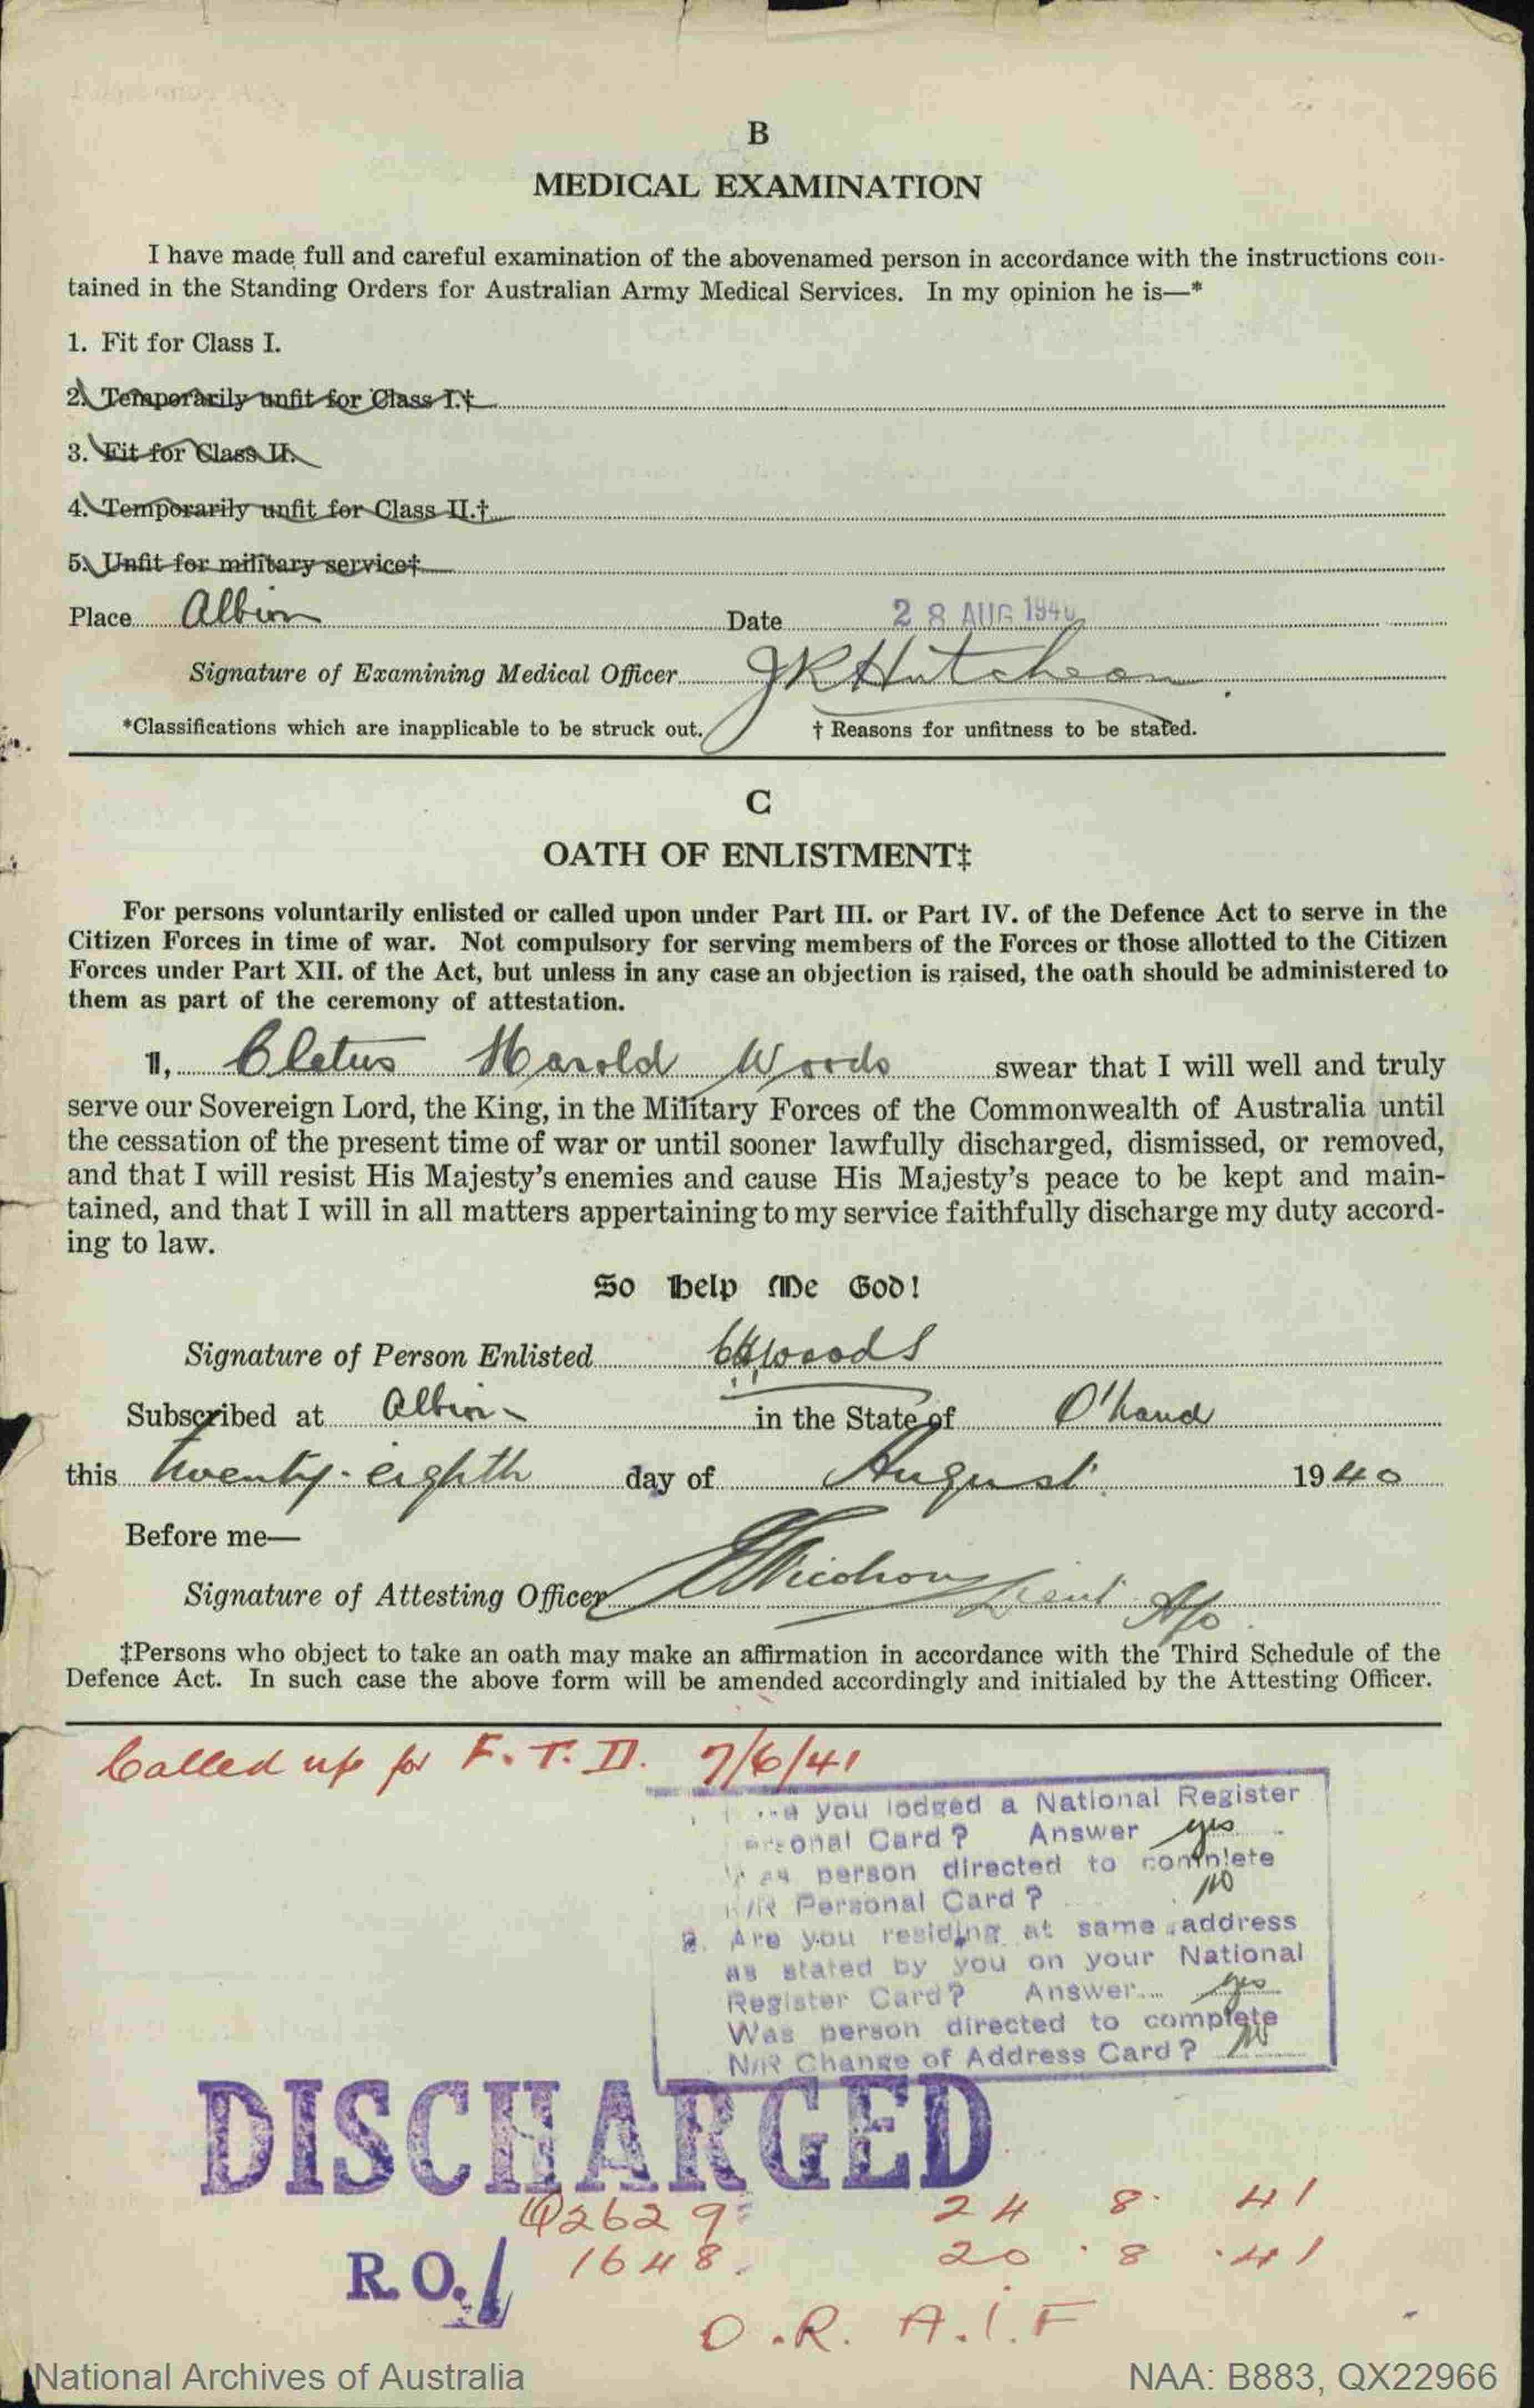 B
MEDICAL EXAMINATION
I have made full and careful examination of the abovenamed person in accordance with the instructions con-
tained in the Standing Orders for Australian Army Medical Services. In my opinion he is—*
1. Fit for Class I.
2. Temporarily unfit for Class I.†
3. Fit for Class II.
4. Temporarily unfit for Class II.†
5. Unfit for military service†
Place Albion Date 28 AUG 1940
Signature of Examining Medical Officer JRHutcheon
*Classifications which are inapplicable to be struck out. † Reasons for unfitness to be stated.
C
OATH OF ENLISTMENT‡
For persons voluntarily enlisted or called upon under Part III. or Part IV. of the Defence Act to serve in the
Citizen Forces in time of war. Not compulsory for serving members of the Forces or those allotted to the Citizen
Forces under Part XII. of the Act, but unless in any case an objection is raised, the oath should be administered to
them as part of the ceremony of attestation.
I, Cletus Harold Woods swear that I will well and truly
serve our Sovereign Lord, the King, in the Military Forces of the Commonwealth of Australia until
the cessation of the present time of war or until sooner lawfully discharged, dismissed, or removed,
and that I will resist His Majesty's enemies and cause His Majesty's peace to be kept and main-
tained, and that I will in all matters appertaining to my service faithfully discharge my duty accord-
ing to law.
So Help Me God!
Signature of Person Enlisted CHWoods
Subscribed at Albion in the State of Q'land
this twenty-eighth day of August 1940
Before me—
Signature of Attesting Officer Lieut A/o
‡Persons who object to take an oath may make an affirmation in accordance with the Third Schedule of the
Defence Act. In such case the above form will be amended accordingly and initialed by the Attesting Officer.
Called up for F.T.D. 7/6/41
you lodged a National Register
Personal Card? Answer yes
Was person directed to complete
N/R Personal Card? No
2. Are you residing at same address
as stated by you on your National
Register Card? Answer yes
Was person directed to complete
N/R Change of Address Card? No
DISCHARGED
Q2629 24 8 41
R.O. 1648. 20.8.41
O.R. A.I.F
National Archives of Australia NAA: B883, QX22966